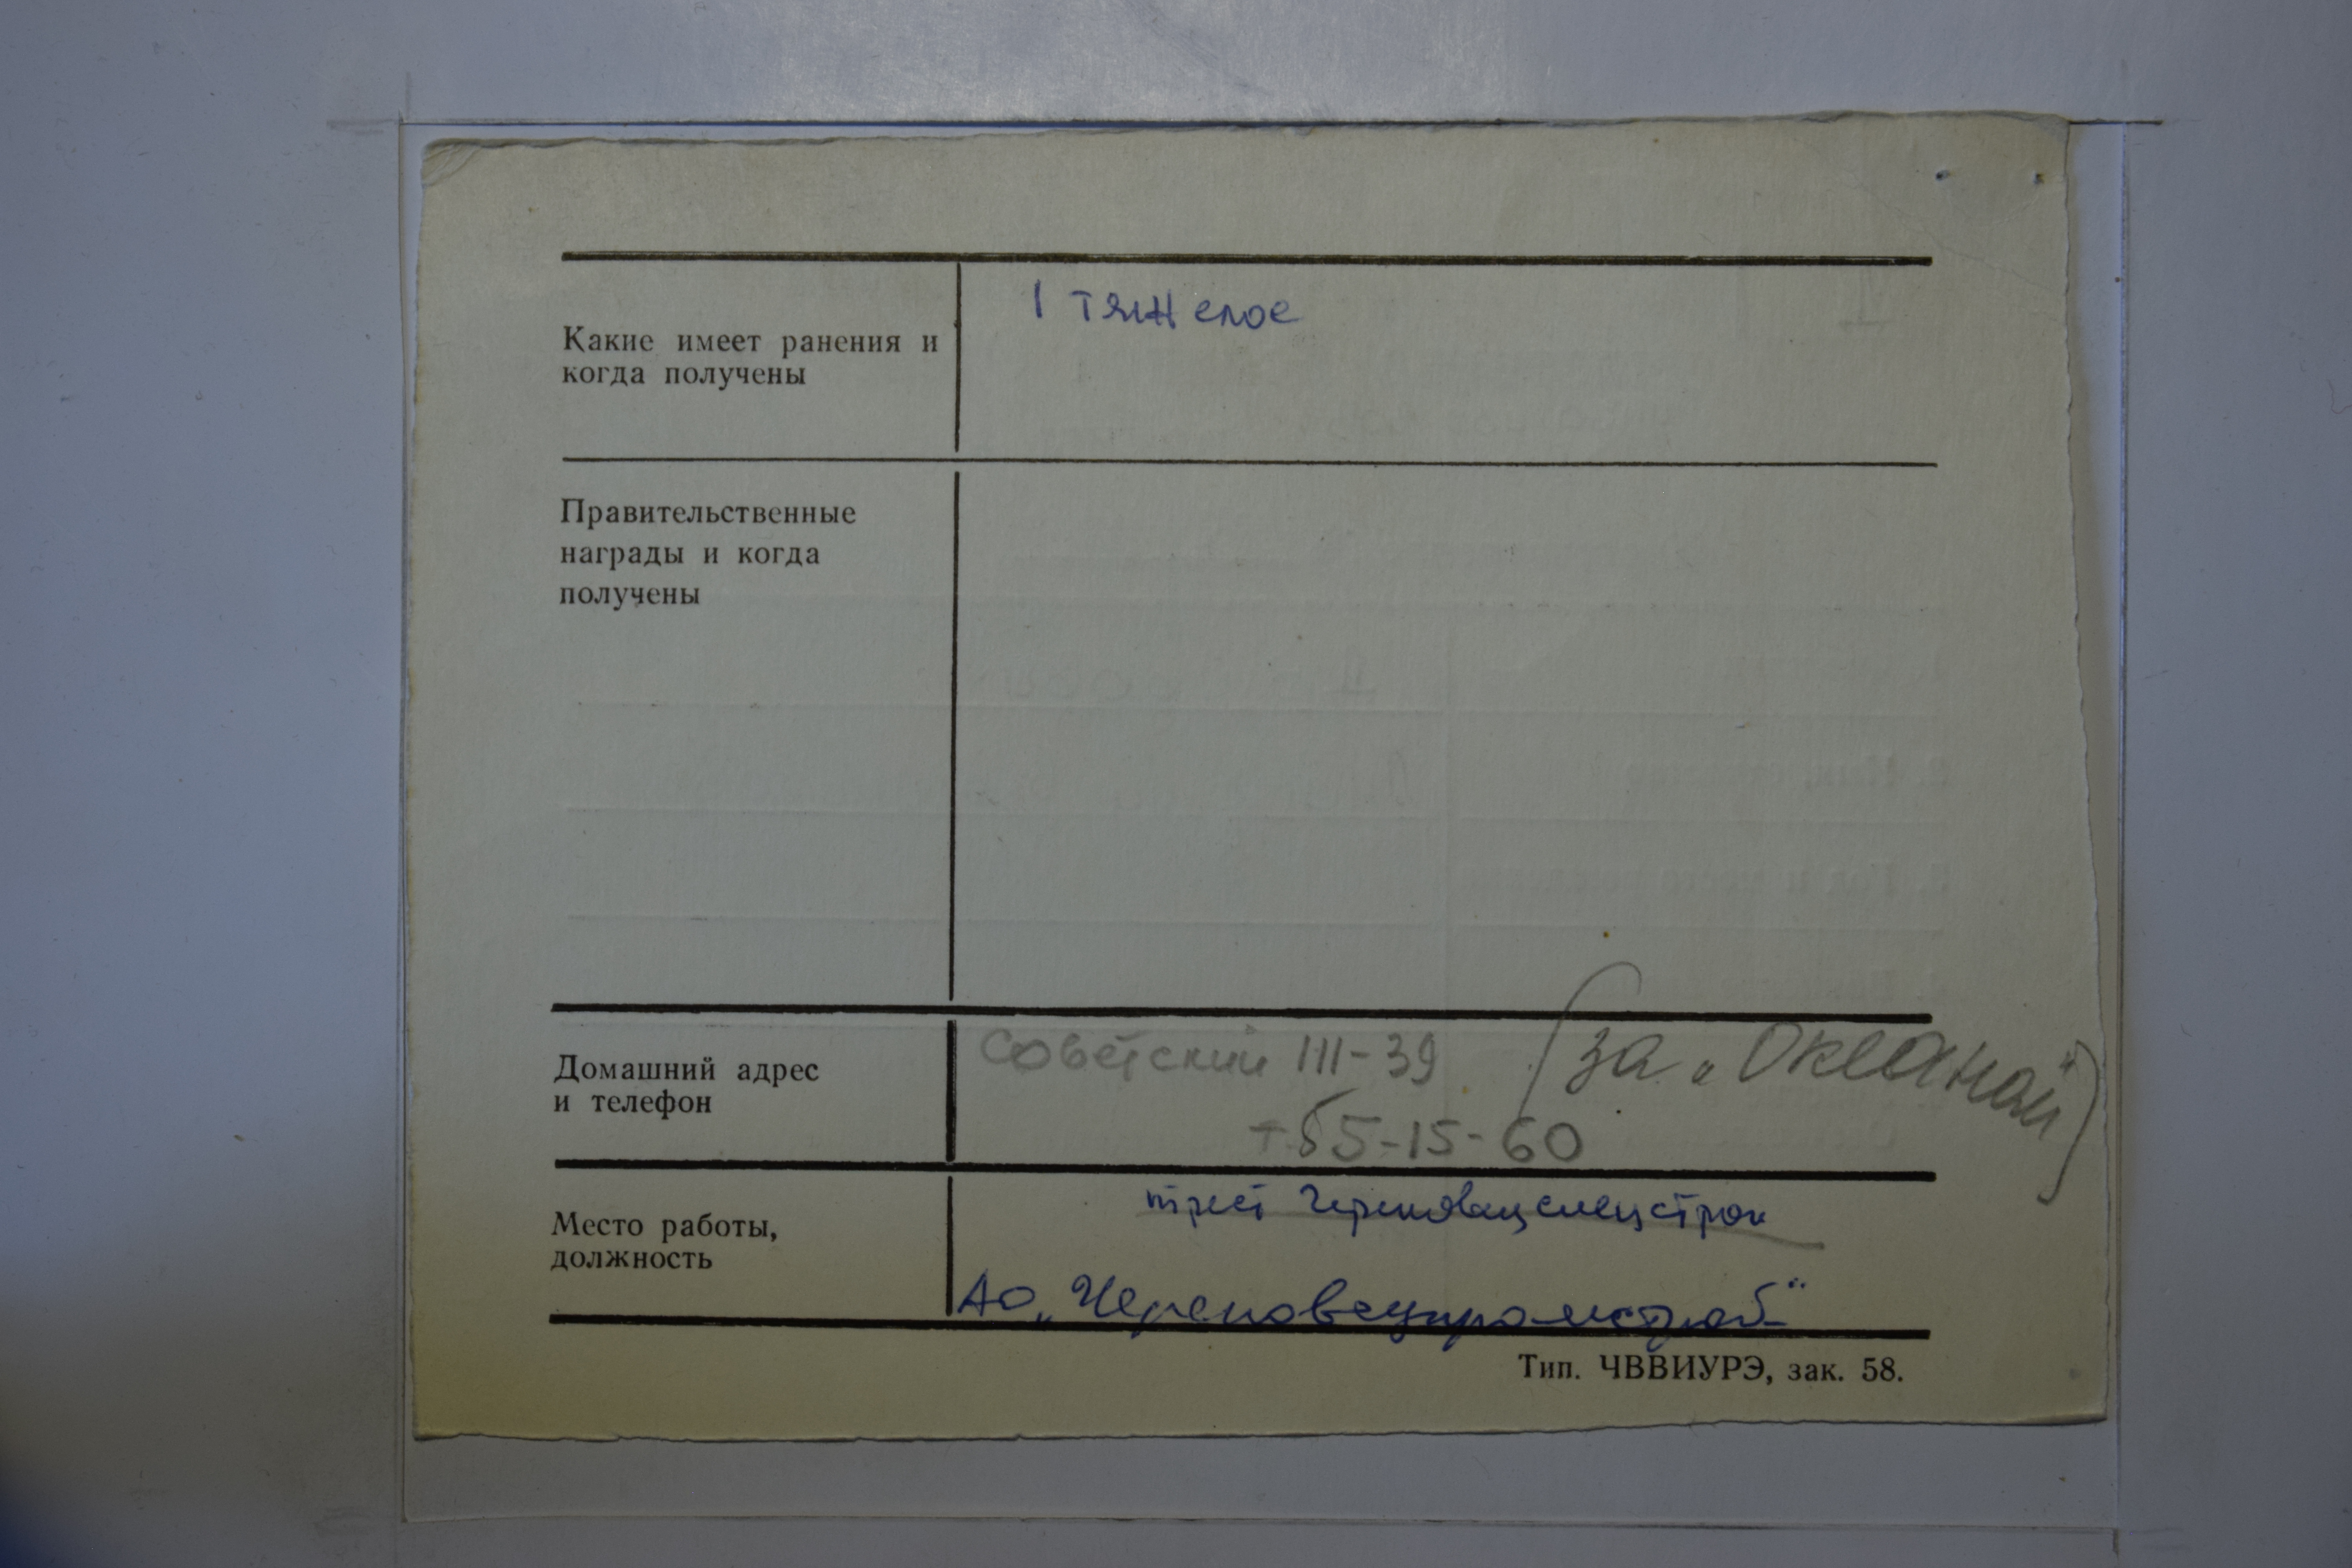 1 тяжелое
Какие имеет ранения и
когда получены
Правительственные
награды и когда
получены
Домашний адрес
и телефон
Советский 111-39 (за „Океаном")
т. 55-15-60
Место работы,
должность
трест Череповецспецстрой
АО „Череповецпромстрой"
Тип. ЧВВИУРЭ, зак. 58.